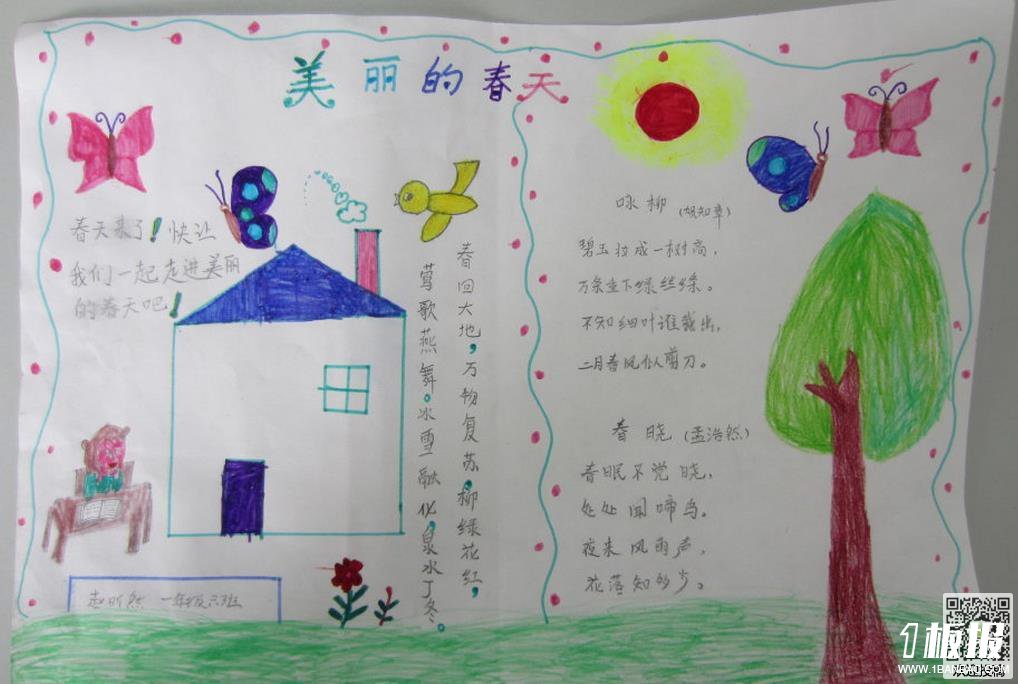 美丽的春天
春天来了!快让
我们一起走进美丽
的春天吧!
春回大地,万物复苏,柳绿花红,
莺歌燕舞。冰雪融化,泉水丁冬。
咏柳 (贺知章)
碧玉妆成一树高,
万条垂下绿丝绦。
不知细叶谁裁出,
二月春风似剪刀。
春晓 (孟浩然)
春眠不觉晓,
处处闻啼鸟。
夜来风雨声,
花落知多少。
一年级六班
1板报
WWW.1BANBAO.COM
欢迎投稿